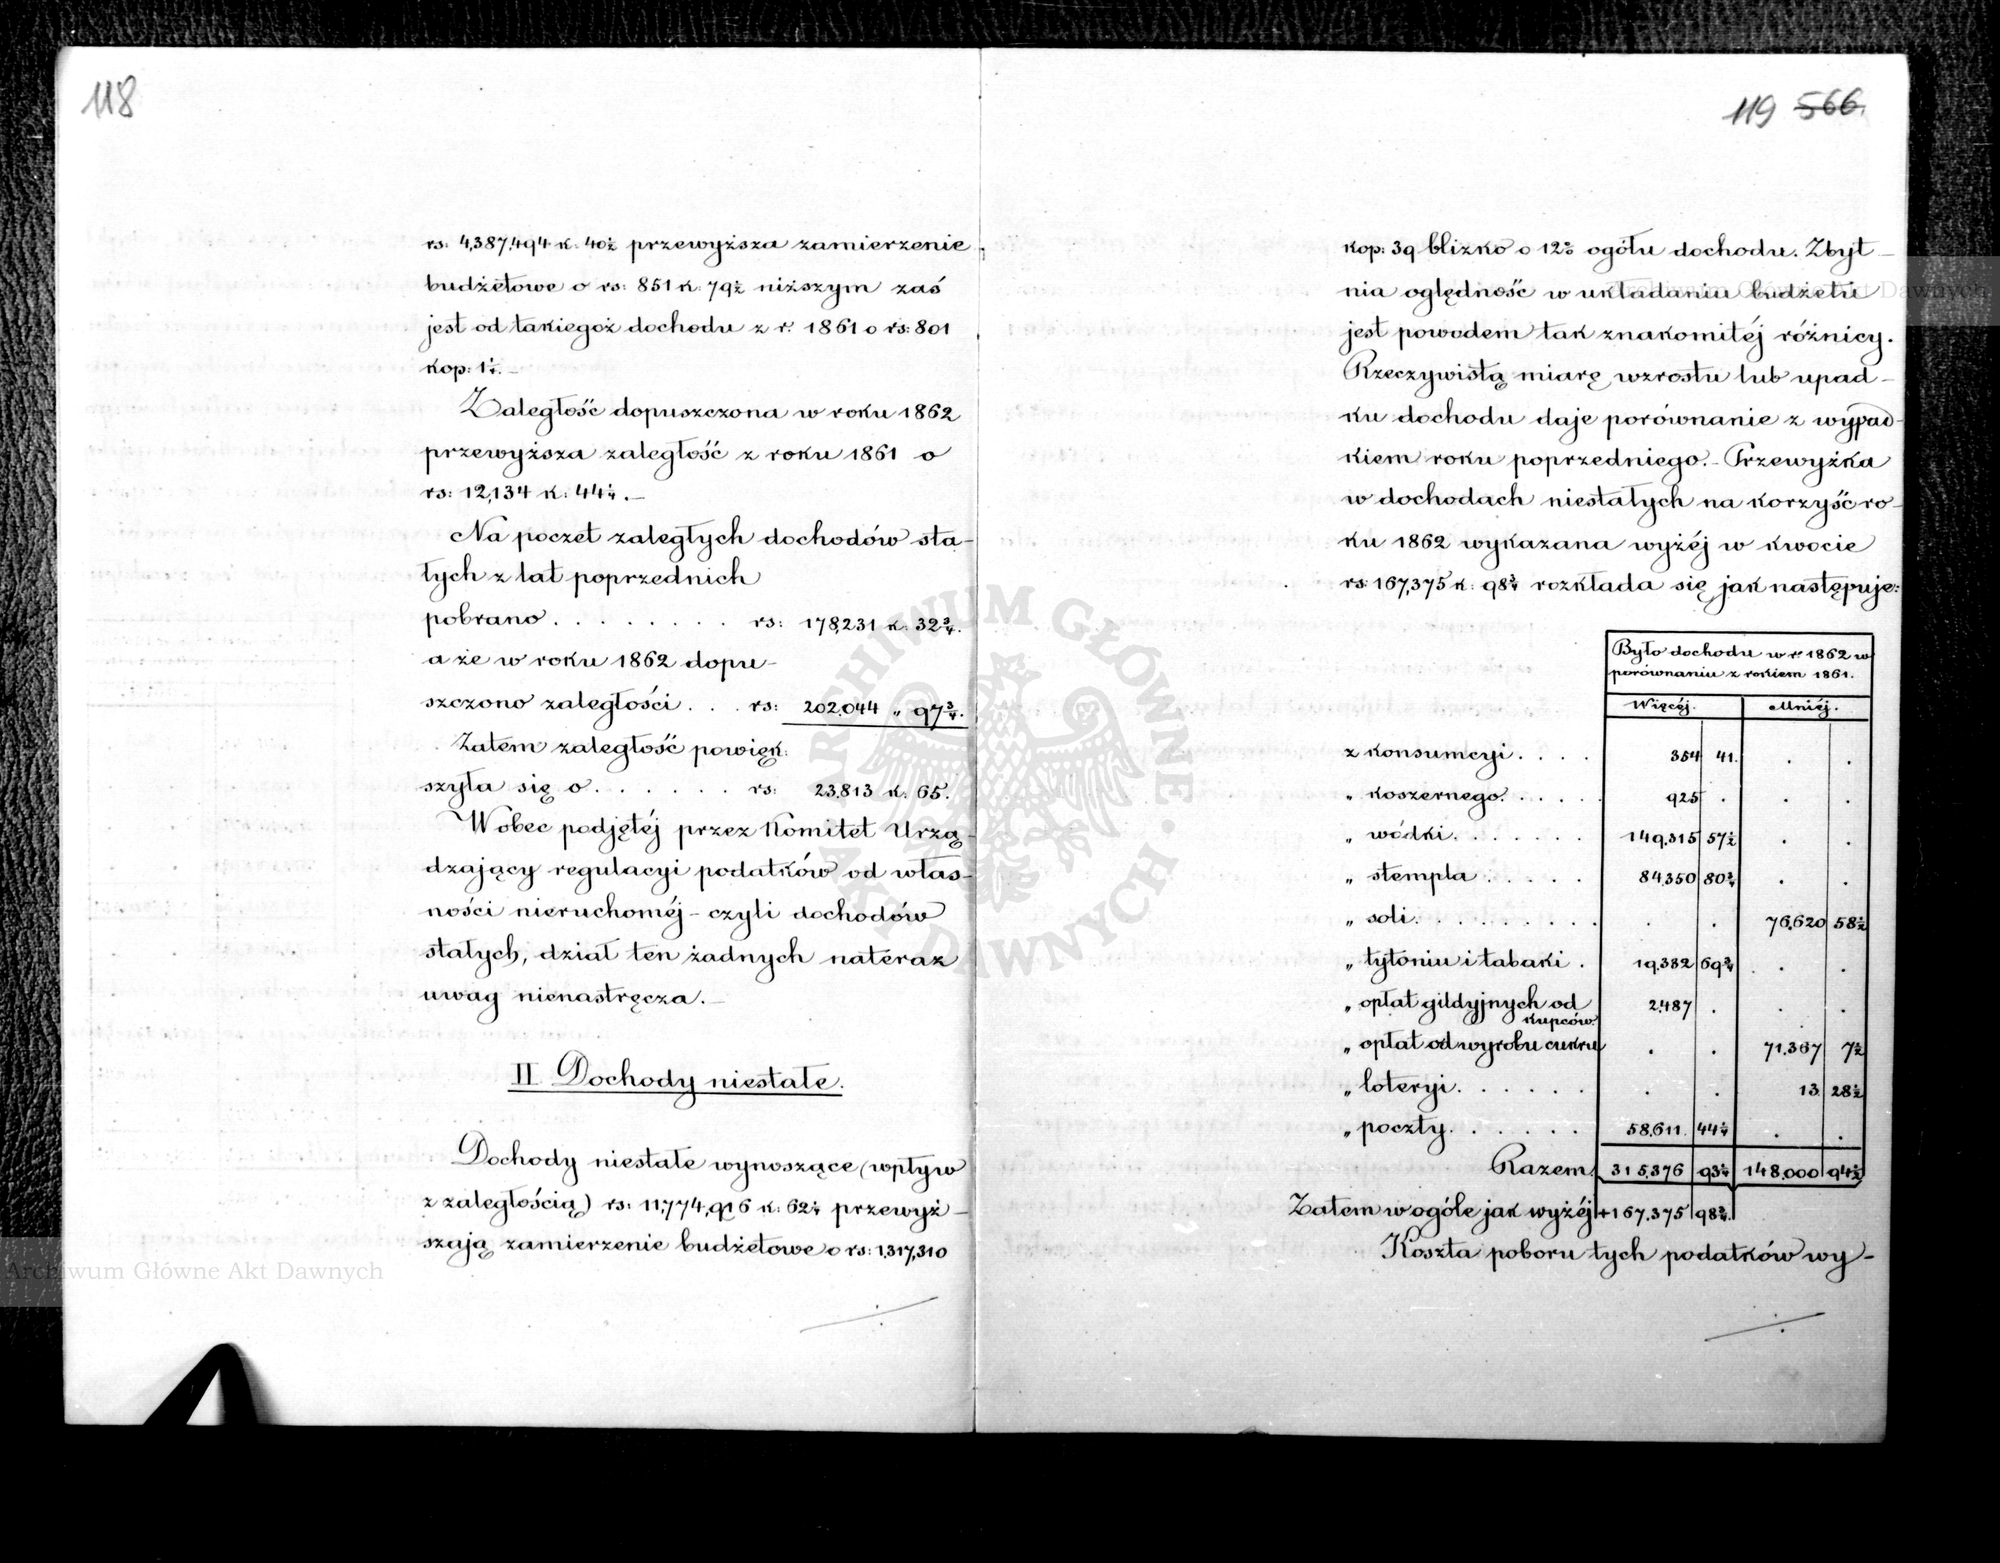 118
rs: 4,387,494 k: 40½ przewyższa zamierzenie
budżetowe o rs: 851 k: 79½ niższym zaś
jest od takiegoż dochodu z r. 1861 o rs: 801
kop: 1¼. —
Zaległość dopuszczona w roku 1862
przewyższa zaległość z roku 1861 o
rs: 12,134 k: 44¼. —
Na poczet zaległych dochodów sta-
łych z lat poprzednich
pobrano . . . . . . . . rs: 178,231 k: 32¾.
a że w roku 1862 dopu-
szczono zaległości . . . rs: 202.044 „ 97¾.
Zatem zaległość powięk:
szyła się o . . . . . . rs: 23.813 k: 65.
Wobec podjętéj przez Komitet Urzą-
dzający regulacyi podatków od włas-
ności nieruchoméj – czyli dochodów
stałych, dział ten żadnych nateraz
uwag nienastręcza. —
II Dochody niestałe.
Dochody niestałe wynoszące (wpływ
z zaległością) rs: 11,774,916 k: 62¼ przewyż-
szają zamierzenie budżetowe o rs: 1,317,310
119 566.
kop: 39 blizko o 12% ogółu dochodu. Zbyt-
nia oględność w układaniu budżetu
jest powodem tak znakomitéj różnicy.
Rzeczywistą miarę wzrostu lub upad-
ku dochodu daje porównanie z wypad-
kiem roku poprzedniego. – Przewyżka
w dochodach niestałych na korzyść ro-
ku 1862 wykazana wyżéj w kwocie
rs: 167,375 k: 98¾ rozkłada się jak następuje:
Było dochodu w r. 1862 w
porównaniu z rokiem 1861.
Więcéj. Mniéj.
z konsumcyi . . . . 354 41. . .
„ koszernego . . . . . 925 . . .
„ wódki . . . . . . . 149.315 57½ . .
„ stempla . . . . . 84.350 80¾ . .
„ soli . . . . . . . . . . . 76.620 58½
„ tytoniu i tabaki . 19.332 69¾ . .
„ opłat gildyjnych od 2.487 . . .
kupców.
„ opłat od wyrobu cukru . . 71.367 7½
„ loteryi . . . . . . . . 13 28½
„ poczty . . . . . . 58.611. 44¼ . .
Razem 315.376 93¼ 148.000 94½
Zatem w ogóle jak wyżéj +167.375 98¾.
Koszta poboru tych podatków wy-
ARCHIWUM GŁÓWNE AKT DAWNYCH
Archiwum Główne Akt Dawnych
Archiwum Główne Akt Dawnych